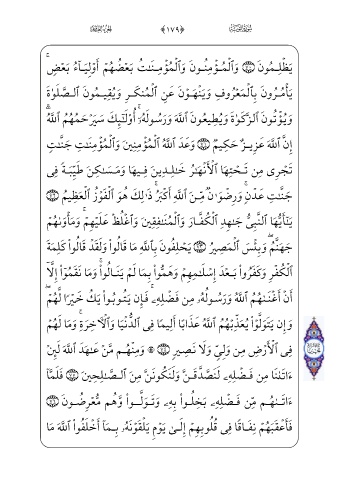 سورة التوبة ﴿١٧٩﴾ الجزء العاشر
يَظْلِمُونَ ۝٧٠ وَٱلْمُؤْمِنُونَ وَٱلْمُؤْمِنَٰتُ بَعْضُهُمْ أَوْلِيَآءُ بَعْضٍۚ
يَأْمُرُونَ بِٱلْمَعْرُوفِ وَيَنْهَوْنَ عَنِ ٱلْمُنكَرِ وَيُقِيمُونَ ٱلصَّلَوٰةَ
وَيُؤْتُونَ ٱلزَّكَوٰةَ وَيُطِيعُونَ ٱللَّهَ وَرَسُولَهُۥٓۚ أُو۟لَٰٓئِكَ سَيَرْحَمُهُمُ ٱللَّهُۗ
إِنَّ ٱللَّهَ عَزِيزٌ حَكِيمٌ ۝٧١ وَعَدَ ٱللَّهُ ٱلْمُؤْمِنِينَ وَٱلْمُؤْمِنَٰتِ جَنَّٰتٍ
تَجْرِى مِن تَحْتِهَا ٱلْأَنْهَٰرُ خَٰلِدِينَ فِيهَا وَمَسَٰكِنَ طَيِّبَةً فِى
جَنَّٰتِ عَدْنٍۚ وَرِضْوَٰنٌ مِّنَ ٱللَّهِ أَكْبَرُۚ ذَٰلِكَ هُوَ ٱلْفَوْزُ ٱلْعَظِيمُ ۝٧٢
يَٰٓأَيُّهَا ٱلنَّبِىُّ جَٰهِدِ ٱلْكُفَّارَ وَٱلْمُنَٰفِقِينَ وَٱغْلُظْ عَلَيْهِمْۚ وَمَأْوَىٰهُمْ
جَهَنَّمُۖ وَبِئْسَ ٱلْمَصِيرُ ۝٧٣ يَحْلِفُونَ بِٱللَّهِ مَا قَالُوا۟ وَلَقَدْ قَالُوا۟ كَلِمَةَ
ٱلْكُفْرِ وَكَفَرُوا۟ بَعْدَ إِسْلَٰمِهِمْ وَهَمُّوا۟ بِمَا لَمْ يَنَالُوا۟ۚ وَمَا نَقَمُوٓا۟ إِلَّآ
أَنْ أَغْنَىٰهُمُ ٱللَّهُ وَرَسُولُهُۥ مِن فَضْلِهِۦۚ فَإِن يَتُوبُوا۟ يَكُ خَيْرًا لَّهُمْۖ
وَإِن يَتَوَلَّوْا۟ يُعَذِّبْهُمُ ٱللَّهُ عَذَابًا أَلِيمًا فِى ٱلدُّنْيَا وَٱلْءَاخِرَةِۚ وَمَا لَهُمْ
فِى ٱلْأَرْضِ مِن وَلِىٍّ وَلَا نَصِيرٍ ۝٧٤ ۞ وَمِنْهُم مَّنْ عَٰهَدَ ٱللَّهَ لَئِنْ
ءَاتَىٰنَا مِن فَضْلِهِۦ لَنَصَّدَّقَنَّ وَلَنَكُونَنَّ مِنَ ٱلصَّٰلِحِينَ ۝٧٥ فَلَمَّآ
ءَاتَىٰهُم مِّن فَضْلِهِۦ بَخِلُوا۟ بِهِۦ وَتَوَلَّوا۟ وَّهُم مُّعْرِضُونَ ۝٧٦
فَأَعْقَبَهُمْ نِفَاقًا فِى قُلُوبِهِمْ إِلَىٰ يَوْمِ يَلْقَوْنَهُۥ بِمَآ أَخْلَفُوا۟ ٱللَّهَ مَا